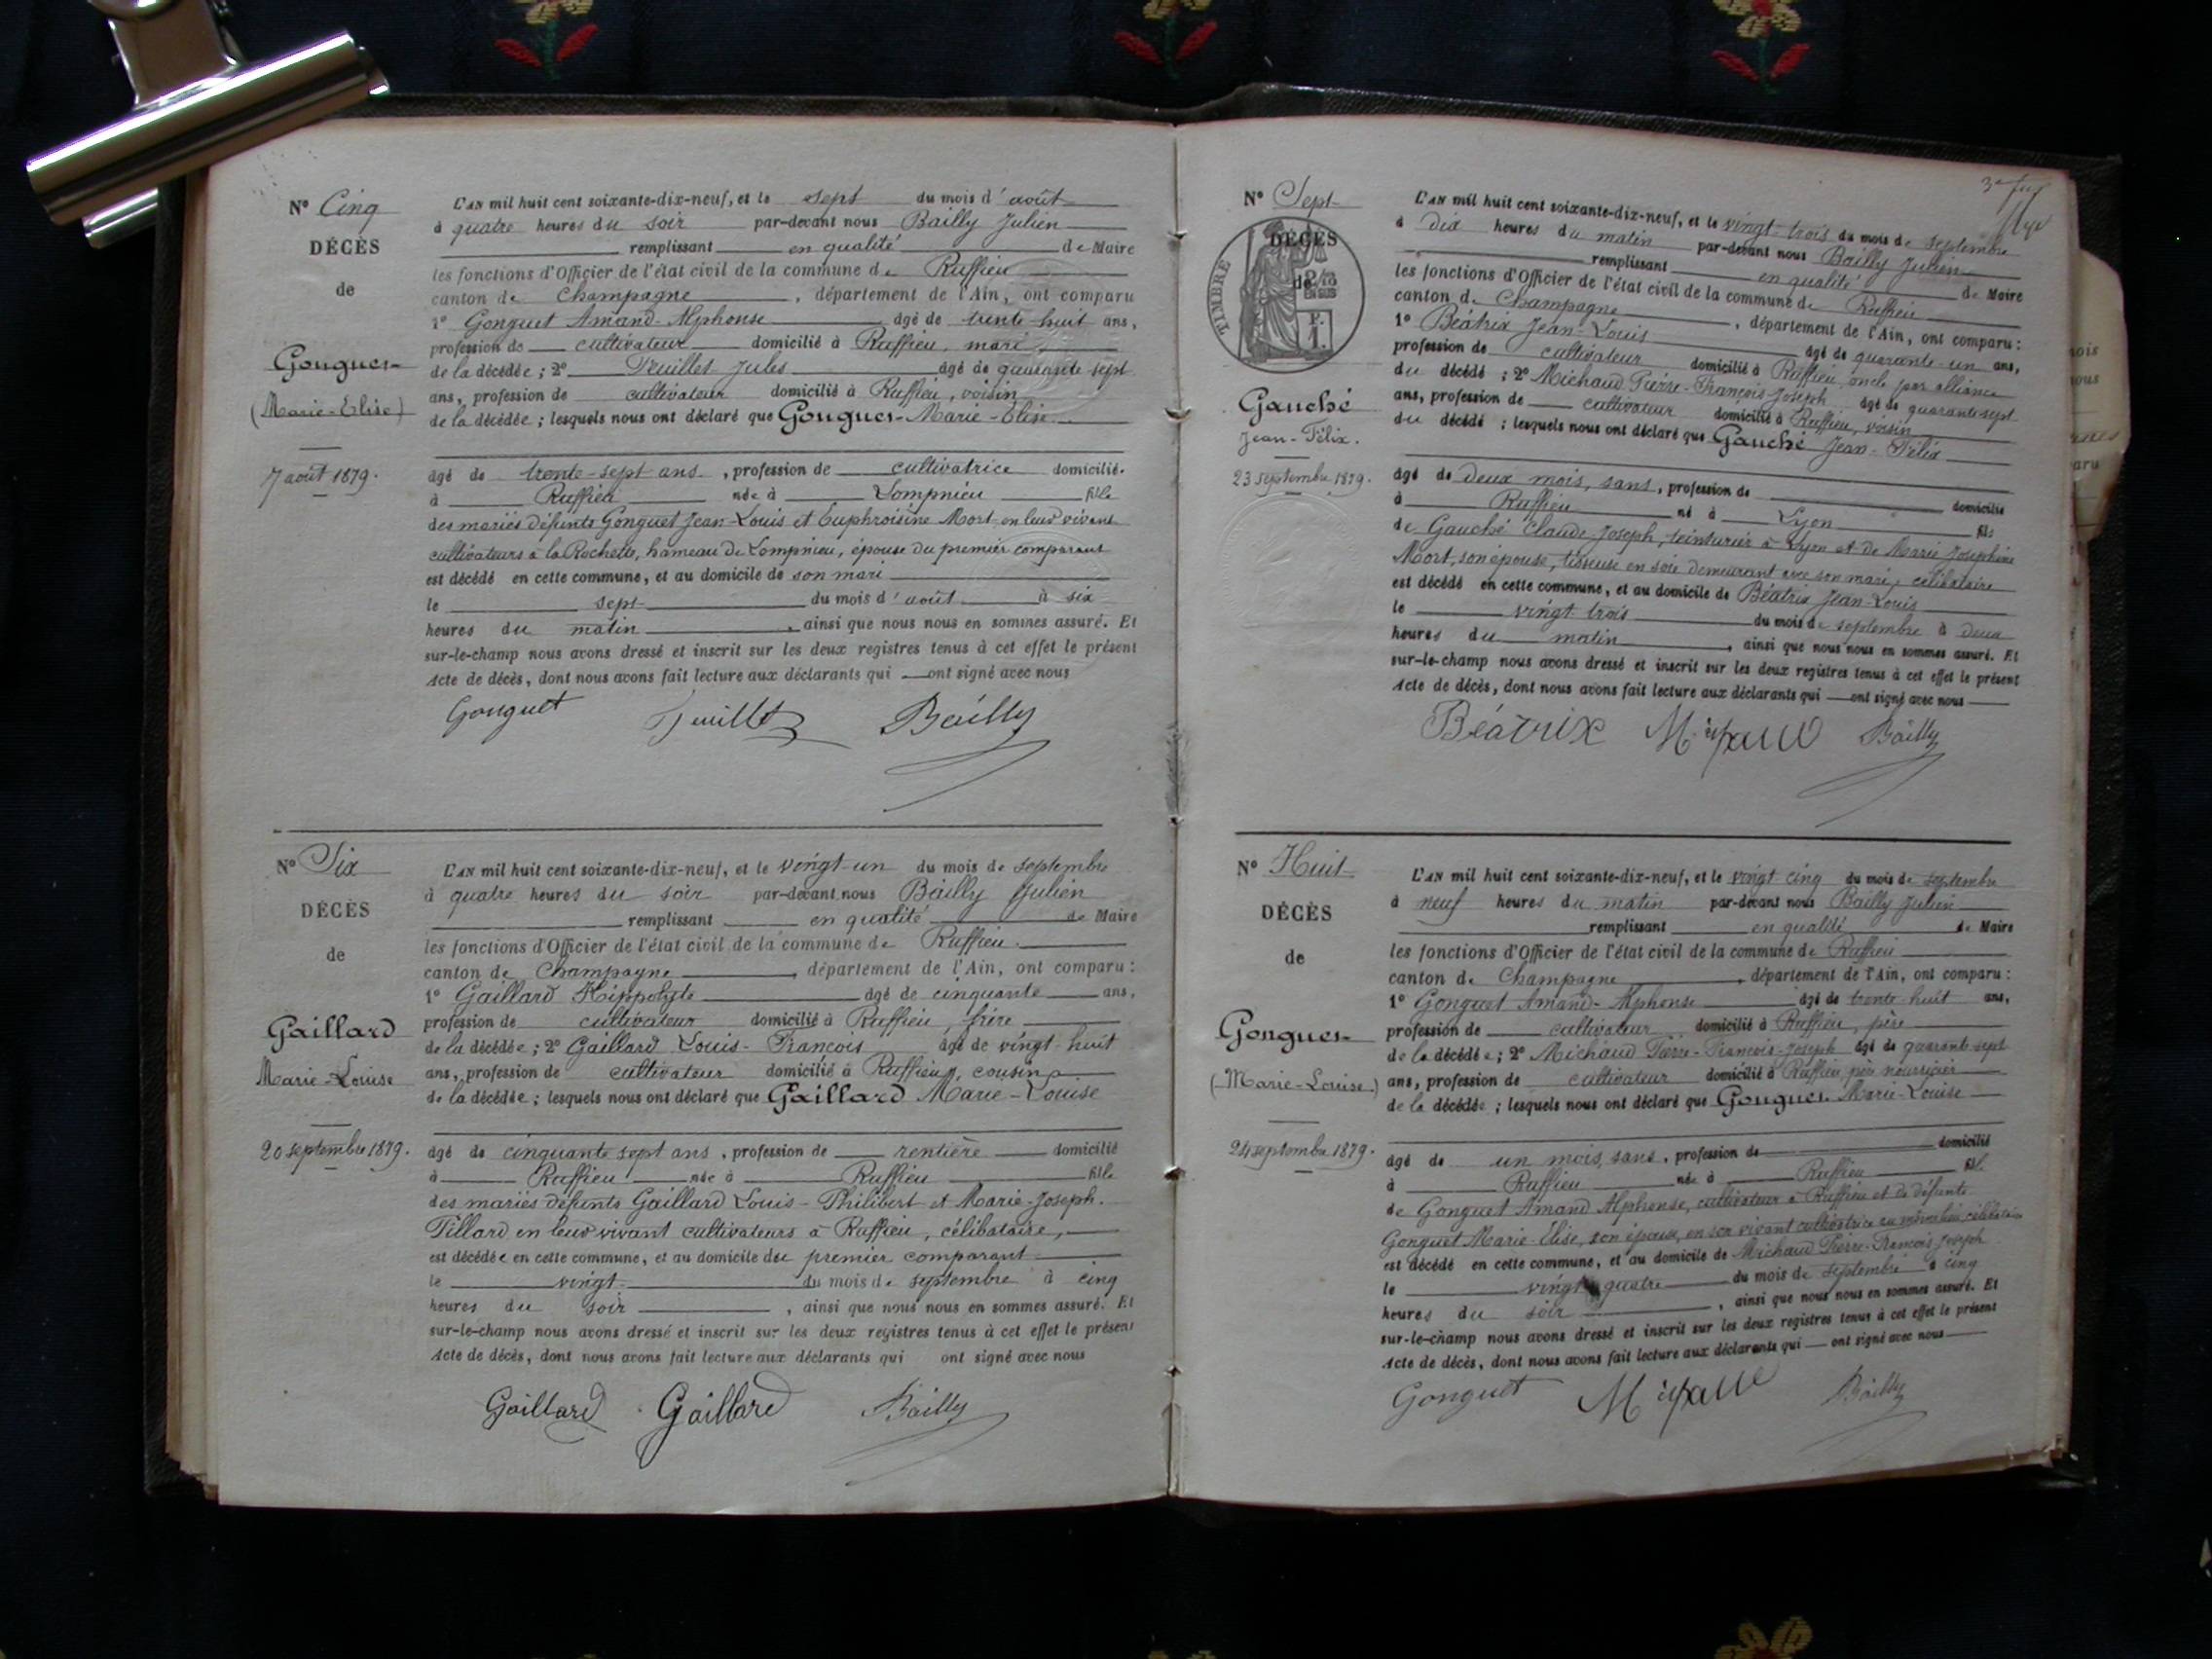 Nº Cinq
DÉCÈS
de
Gonguet
(Marie-Elise)
7 août 1879.
L'AN mil huit cent soixante-dix-neuf, et le sept du mois d'août
à quatre heures du soir par-devant nous Bailly Julien
remplissant en qualité de Maire
les fonctions d'Officier de l'état civil de la commune de Ruffieu
canton de Champagne, département de l'Ain, ont comparu
1º Gonguet Amand-Alphonse âgé de trente-huit ans,
profession de cultivateur domicilié à Ruffieu, mari
de la décédée; 2º Feuillet Jules âgé de quarante-sept
ans, profession de cultivateur domicilié à Ruffieu, voisin
de la décédée; lesquels nous ont déclaré que Gonguet Marie-Elise
âgé de trente-sept ans, profession de cultivatrice domicilié
à Ruffieu née à Lompnieu fille
des mariés défunts Gonguet Jean-Louis et Euphroisine Mort en leur vivant
cultivateurs à la Rochette, hameau de Lompnieu, épouse du premier comparant
est décédé en cette commune, et au domicile de son mari
le sept du mois d'août à six
heures du matin, ainsi que nous nous en sommes assuré. Et
sur-le-champ nous avons dressé et inscrit sur les deux registres tenus à cet effet le présent
Acte de décès, dont nous avons fait lecture aux déclarants qui ont signé avec nous
Gonguet Feuillet Bailly
Nº Six
DÉCÈS
de
Gaillard
Marie-Louise
20 septembre 1879.
L'AN mil huit cent soixante-dix-neuf, et le vingt-un du mois de septembre
à quatre heures du soir par-devant nous Bailly Julien
remplissant en qualité de Maire
les fonctions d'Officier de l'état civil de la commune de Ruffieu
canton de Champagne, département de l'Ain, ont comparu:
1º Gaillard Hippolyte âgé de cinquante ans,
profession de cultivateur domicilié à Ruffieu, frère
de la décédée; 2º Gaillard Louis-François âgé de vingt-huit
ans, profession de cultivateur domicilié à Ruffieu, cousin
de la décédée; lesquels nous ont déclaré que Gaillard Marie-Louise
âgé de cinquante sept ans, profession de rentière domicilié
à Ruffieu née à Ruffieu fille
des mariés défunts Gaillard Louis-Philibert et Marie-Joseph.
Tillard en leur vivant cultivateurs à Ruffieu, célibataire,
est décédée en cette commune, et au domicile du premier comparant
le vingt du mois de septembre à cinq
heures du soir, ainsi que nous nous en sommes assuré. Et
sur-le-champ nous avons dressé et inscrit sur les deux registres tenus à cet effet le présent
Acte de décès, dont nous avons fait lecture aux déclarants qui ont signé avec nous
Gaillard Gaillard Bailly
Nº Sept
DÉCÈS
de
TIMBRE
Gauché
Jean-Félix.
23 septembre 1879.
L'AN mil huit cent soixante-dix-neuf, et le vingt-trois du mois de septembre
à dix heures du matin par-devant nous Bailly Julien
remplissant en qualité de Maire
les fonctions d'Officier de l'état civil de la commune de Ruffieu
canton de Champagne, département de l'Ain, ont comparu:
1º Béatrix Jean-Louis âgé de quarante-un ans,
profession de cultivateur domicilié à Ruffieu, oncle par alliance
du décédé; 2º Michaud Pierre-François-Joseph âgé de quarante-sept
ans, profession de cultivateur domicilié à Ruffieu, voisin
du décédé; lesquels nous ont déclaré que Gauché Jean-Félix
âgé de deux mois, sans, profession de domicilié
à Ruffieu né à Lyon fils
de Gauché Claude Joseph, teinturier à Lyon et de Marie Joséphine
Mort, son épouse, tisseuse en soie demeurant avec son mari, célibataire
est décédé en cette commune, et au domicile de Béatrix Jean-Louis
le vingt trois du mois de septembre à deux
heures du matin, ainsi que nous nous en sommes assuré. Et
sur-le-champ nous avons dressé et inscrit sur les deux registres tenus à cet effet le présent
Acte de décès, dont nous avons fait lecture aux déclarants qui ont signé avec nous
Béatrix Michaud Bailly
Nº Huit
DÉCÈS
de
Gonguet
(Marie-Louise.)
24 septembre 1879.
L'AN mil huit cent soixante-dix-neuf, et le vingt cinq du mois de septembre
à neuf heures du matin par-devant nous Bailly Julien
remplissant en qualité de Maire
les fonctions d'Officier de l'état civil de la commune de Ruffieu
canton de Champagne, département de l'Ain, ont comparu:
1º Gonguet Amand-Alphonse âgé de trente-huit ans,
profession de cultivateur domicilié à Ruffieu, père
de la décédée; 2º Michaud Pierre-François-Joseph âgé de quarante-sept
ans, profession de cultivateur domicilié à Ruffieu père nourricier
de la décédée; lesquels nous ont déclaré que Gonguet Marie-Louise
âgé de un mois, sans, profession de domicilié
à Ruffieu née à Ruffieu fille
de Gonguet Amand Alphonse, cultivateur à Ruffieu et de défunte
Gonguet Marie-Elise, son épouse, en son vivant cultivatrice au même lieu, célibataire
est décédé en cette commune, et au domicile de Michaud Pierre-François Joseph
le vingt quatre du mois de septembre à cinq
heures du soir, ainsi que nous nous en sommes assuré. Et
sur-le-champ nous avons dressé et inscrit sur les deux registres tenus à cet effet le présent
Acte de décès, dont nous avons fait lecture aux déclarants qui ont signé avec nous
Gonguet Michaud Bailly